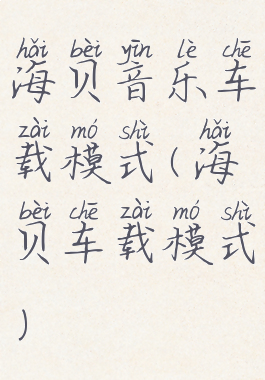 hǎi bèi yīn lè chē
海贝音乐车
zài mó shì hǎi
载模式(海
bèi chē zài mó shì
贝车载模式
)